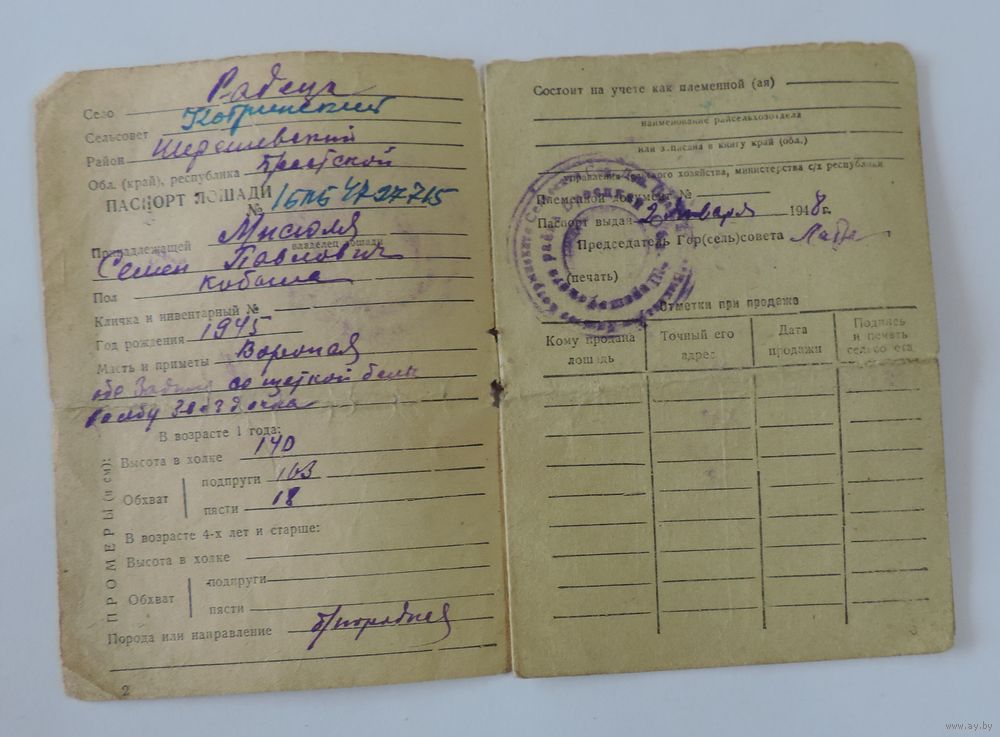 Село Радецк
Сельсовет Кобринский
Район Шерешевский
Обл. (край), республика Брестской
ПАСПОРТ ЛОШАДИ
№
Принадлежащей Мисюля
владелец лошади
Семен Павлович
Пол кобыла
Кличка и инвентарный №
Год рождения 1945
Масть и приметы Вороная
обе Задние со щеткой белы
во лбу Звездочка
В возрасте 1 года:
ПРОМЕРЫ (в см):
Высота в холке 140
Обхват
подпруги 163
пясти 18
В возрасте 4-х лет и старше:
Высота в холке
Обхват
подпруги
пясти
Порода или направление б/породная
2
Состоит на учете как племенной (ая)
наименование райсельхозотдела
или записана в книгу край (обл.)
управления сельского хозяйства, министерства с/х республики
Племенной документ №
Паспорт выдан 2 января 1948 г.
Председатель Гор(сель)совета
(печать)
Отметки при продаже
Кому продана лошадь
Точный его адрес
Дата продажи
Подпись и печать сельсовета
3
www.ay.by